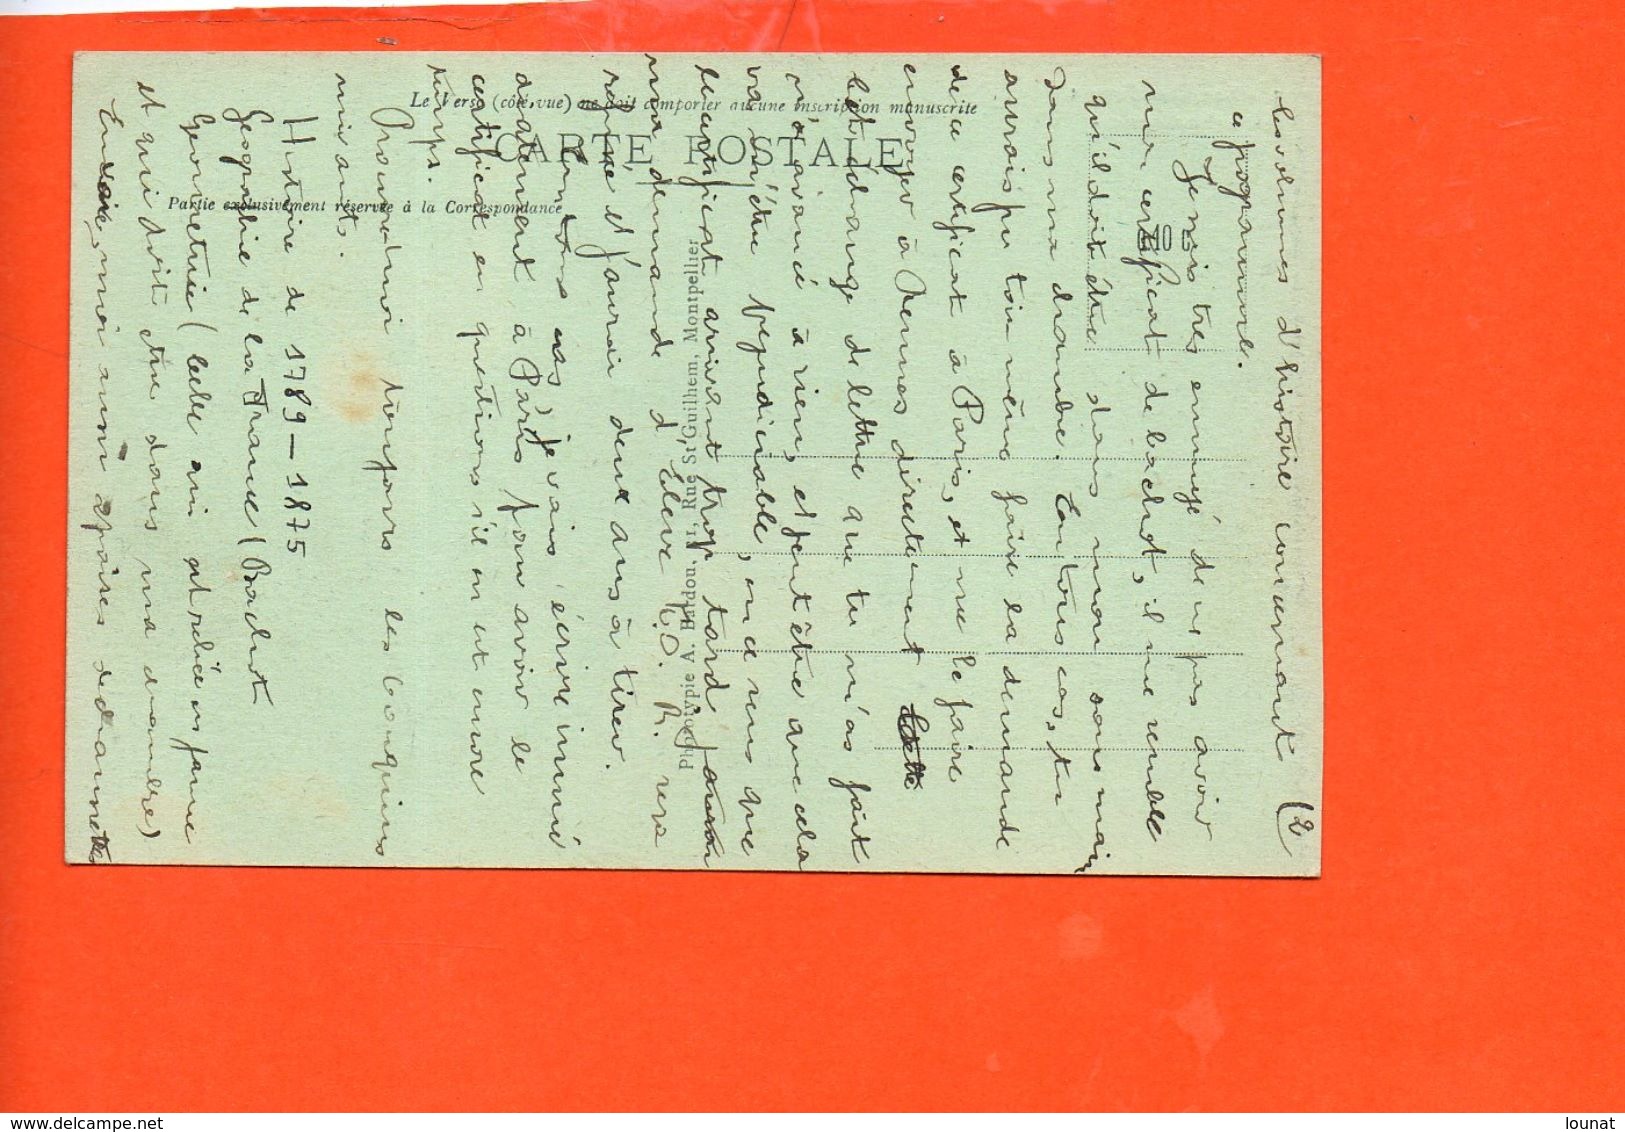 Le Verso (côté vue) ne doit comporter aucune inscription manuscrite
CARTE POSTALE
Partie exclusivement réservée à la Correspondance
Phototypie A. Bardou, 21, Rue St Guilhem, Montpellier
(2
les volumes d'histoire concernant
ce programme.
Je suis très ennuyé de ne pas avoir
mon certificat de bachot, il me semble
qu'il doit être dans mon sous main
dans ma chambre. En tous cas, tu
aurais pu toi même faire la demande
de ce certificat à Paris, et me le faire
envoyer à Rennes directement lette
Cet échange de lettre que tu m'as fait
m'a avancé à rien, et peut être que cela
va m'être préjudiciable, en ce sens que
le certificat arrivant trop tard,
ma demande d'Elève O. R. sera
et j'aurai deux ans à tirer.
Dans cas, je vais écrire immé
diatement à Paris pour avoir le
certificat en question s'il en est encore
temps.
Procure moi toujours les bouquins
suivants.
Histoire de 1789-1875
Géographie de la France (Bachot
Géométrie (celle qui est reliée en jaune
et qui doit être dans ma chambre)
Envoie moi aussi épaisses
lounat